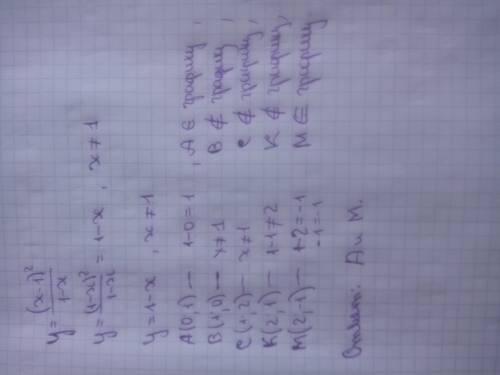 y = (x-1)²/1-x
y = (1-x)²/1-x = 1-x , x ≠ 1
y = 1-x , x ≠ 1
A(0;1) — 1-0=1 , A ∈ графику,
B(1;0) — x≠1 B ∉ графику,
C(1;2) — x≠1 C ∉ графику,
K(2;1) — 1-1≠2 K ∉ графику,
M(2;-1) — 1-2=-1 M ∈ графику
-1=-1
Ответ: A и M.